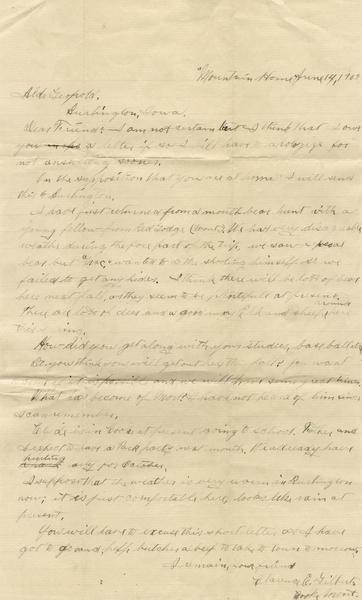 "Mountain Home" June 14, 190
Aldo Leopold.
Burlington, Iowa.
Dear Friend:- I am not certain but I think that I owe
you a letter, if so I will have to apologize for
not answering sooner.
On the supposition that you are at home I will send
this to Burlington.
I have just returned from a month bear hunt with a
young fellow from Red Lodge (Mont). We had very disagreeable
weather during the fore part of the trip, we saw several
bear but wanted to do the shooting himself so we
failed to get any hides. I think there will be lots of bear
here next fall, as they seem to be plentiful at present.
There are lots of deer and a good many Elk and sheep
this spring.
How did you get along with your studies, base ball etc.
Do you think you will get out here this fall? you want
to if possible and we will have some great times.
What has become of I have not heard of him since
I can remember.
Clyde is in Cody at present going to school. Father and
I expect to have a Pack party next month. I already have
hunting party for October.
I suppose that the weather is very warm in Burlington
now; it is just comfortable here, looks like rain at
present.
You will have to excuse this short letter as I have
got to go and help butcher a beef to take to town to-morrow.
I remain, your friend
Clarence E. Gilbert.